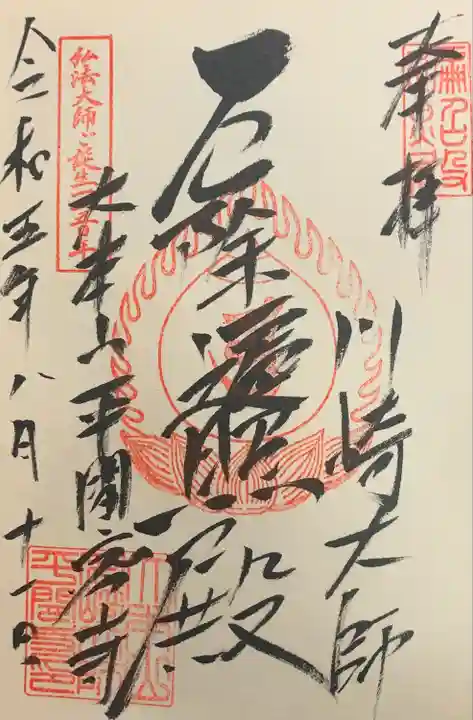 奉拝
川崎大師
厄除遍照殿
大本山平間密寺
弘法大師ご誕生一二五〇年
令和五年八月十一日